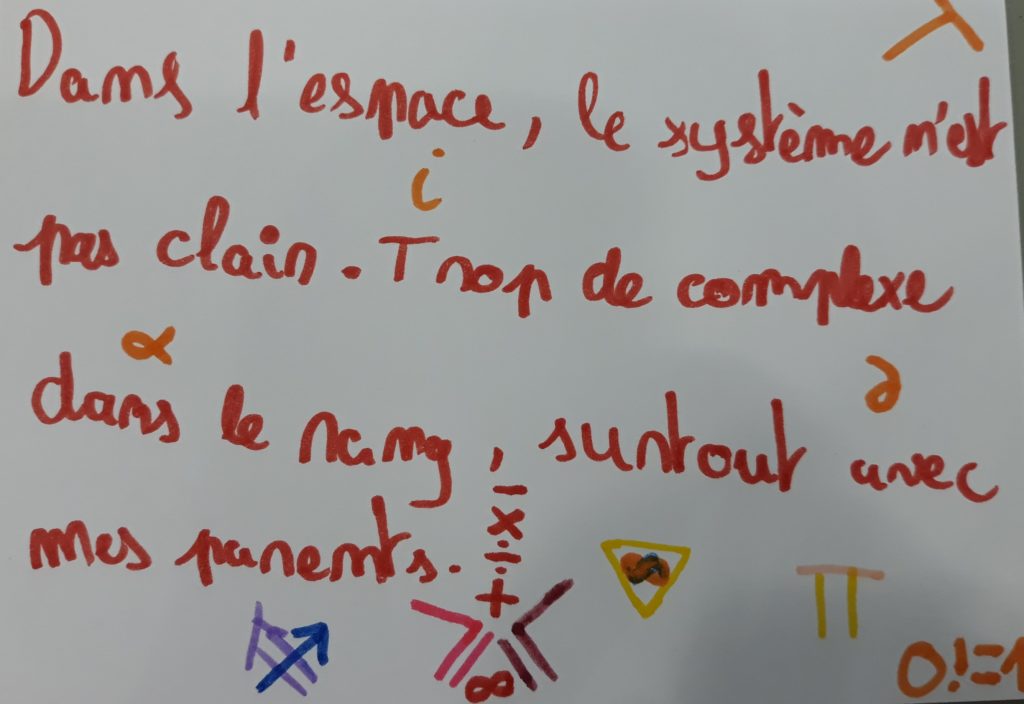 Dans l'espace, le système n'est
i
pas clair. Trop de complexe
α ∂
dans le rang, surtout avec
mes parents.
- × ÷ +
∞
π
0!=1